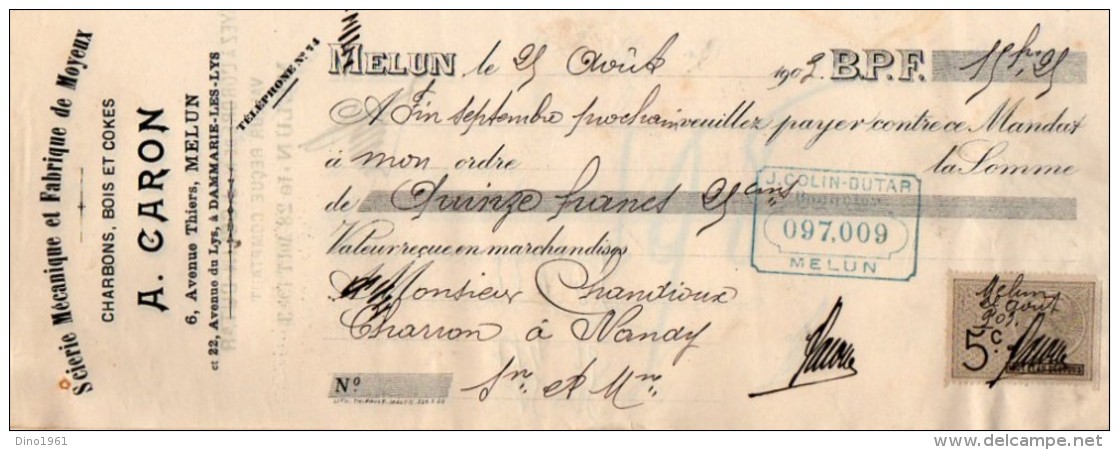 Scierie Mécanique et Fabrique de Moyeux
CHARBONS, BOIS ET COKES
A. CARON
6, Avenue Thiers, MELUN
et 22, Avenue du Lys, à DAMMARIE-LES-LYS
TÉLÉPHONE N° 14
MELUN le 25 Août 1903. B.P.F. 15 frs 25
A Fin septembre prochain veuillez payer contre ce Mandat
à mon ordre la Somme
de Quinze francs 25 cms
Valeur reçue en marchandises
A Monsieur Chandioux
Charron à Nandy
Nº Sne et Mne
J. COLIN-DUTAR
Banquier
097,009
MELUN
Melun
25 août
903.
5 c.
Caron
Caron
Dino1961